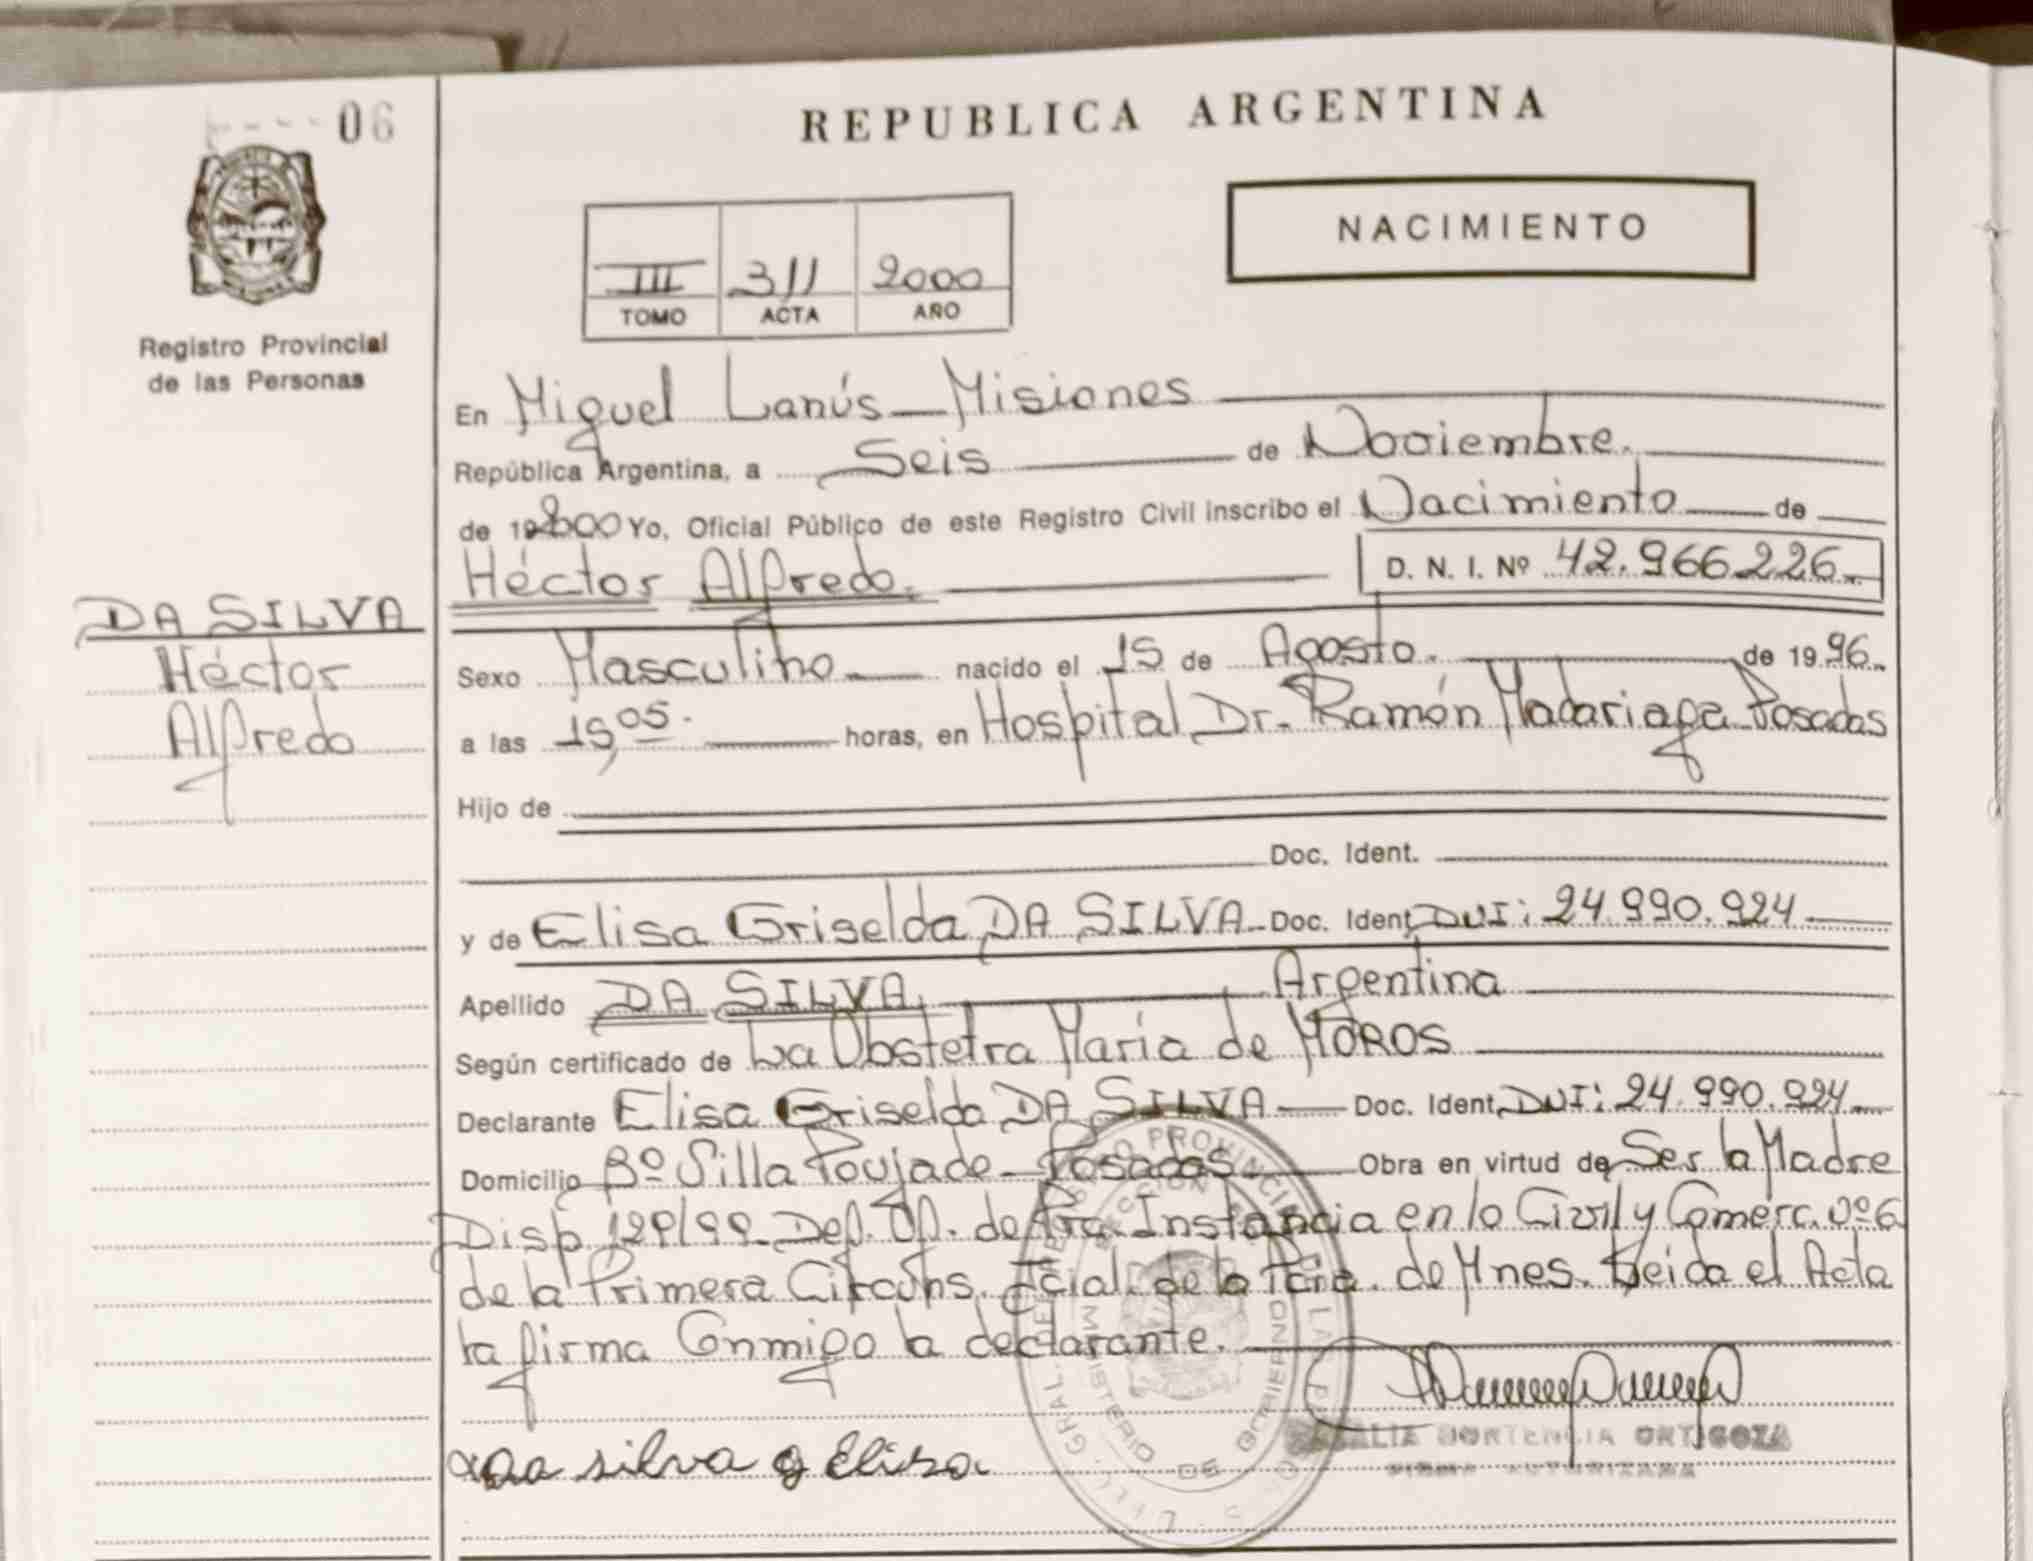 06
REPUBLICA ARGENTINA
NACIMIENTO
III 311 2000
TOMO ACTA AÑO
Registro Provincial
de las Personas
En Miguel Lanús - Misiones
República Argentina, a Seis de Noviembre.
de 19 2000 Yo, Oficial Público de este Registro Civil inscribo el Nacimiento de
Héctor Alfredo. D. N. I. Nº 42.966.226.
DA SILVA
Héctor
Alfredo
Sexo Masculino nacido el 15 de Agosto. de 19 96.
a las 15,05. horas, en Hospital Dr. Ramón Madariaga - Posadas
Hijo de
Doc. Ident.
y de Elisa Griselda DA SILVA - Doc. Ident. DNI: 24.990.924
Apellido DA SILVA. Argentina
Según certificado de La Obstetra María de MOROS
Declarante Elisa Griselda DA SILVA Doc. Ident. DNI: 24.990.924
Domicilio Bº Silla Poujade - Posadas. Obra en virtud de Ser la Madre
Disp. 129/99 - Def. Of. de Pra. Instancia en lo Civil y Comerc. Nº 6
de la Primera Circuns. Jcial. de la Pcia. de Mnes. Leida el Acta
la firma Conmigo la declarante.
da silva g Elisa
HORTENCIA ORTIGOZA
FIRMA AUTORIZADA
MINISTERIO DE GOBIERNO